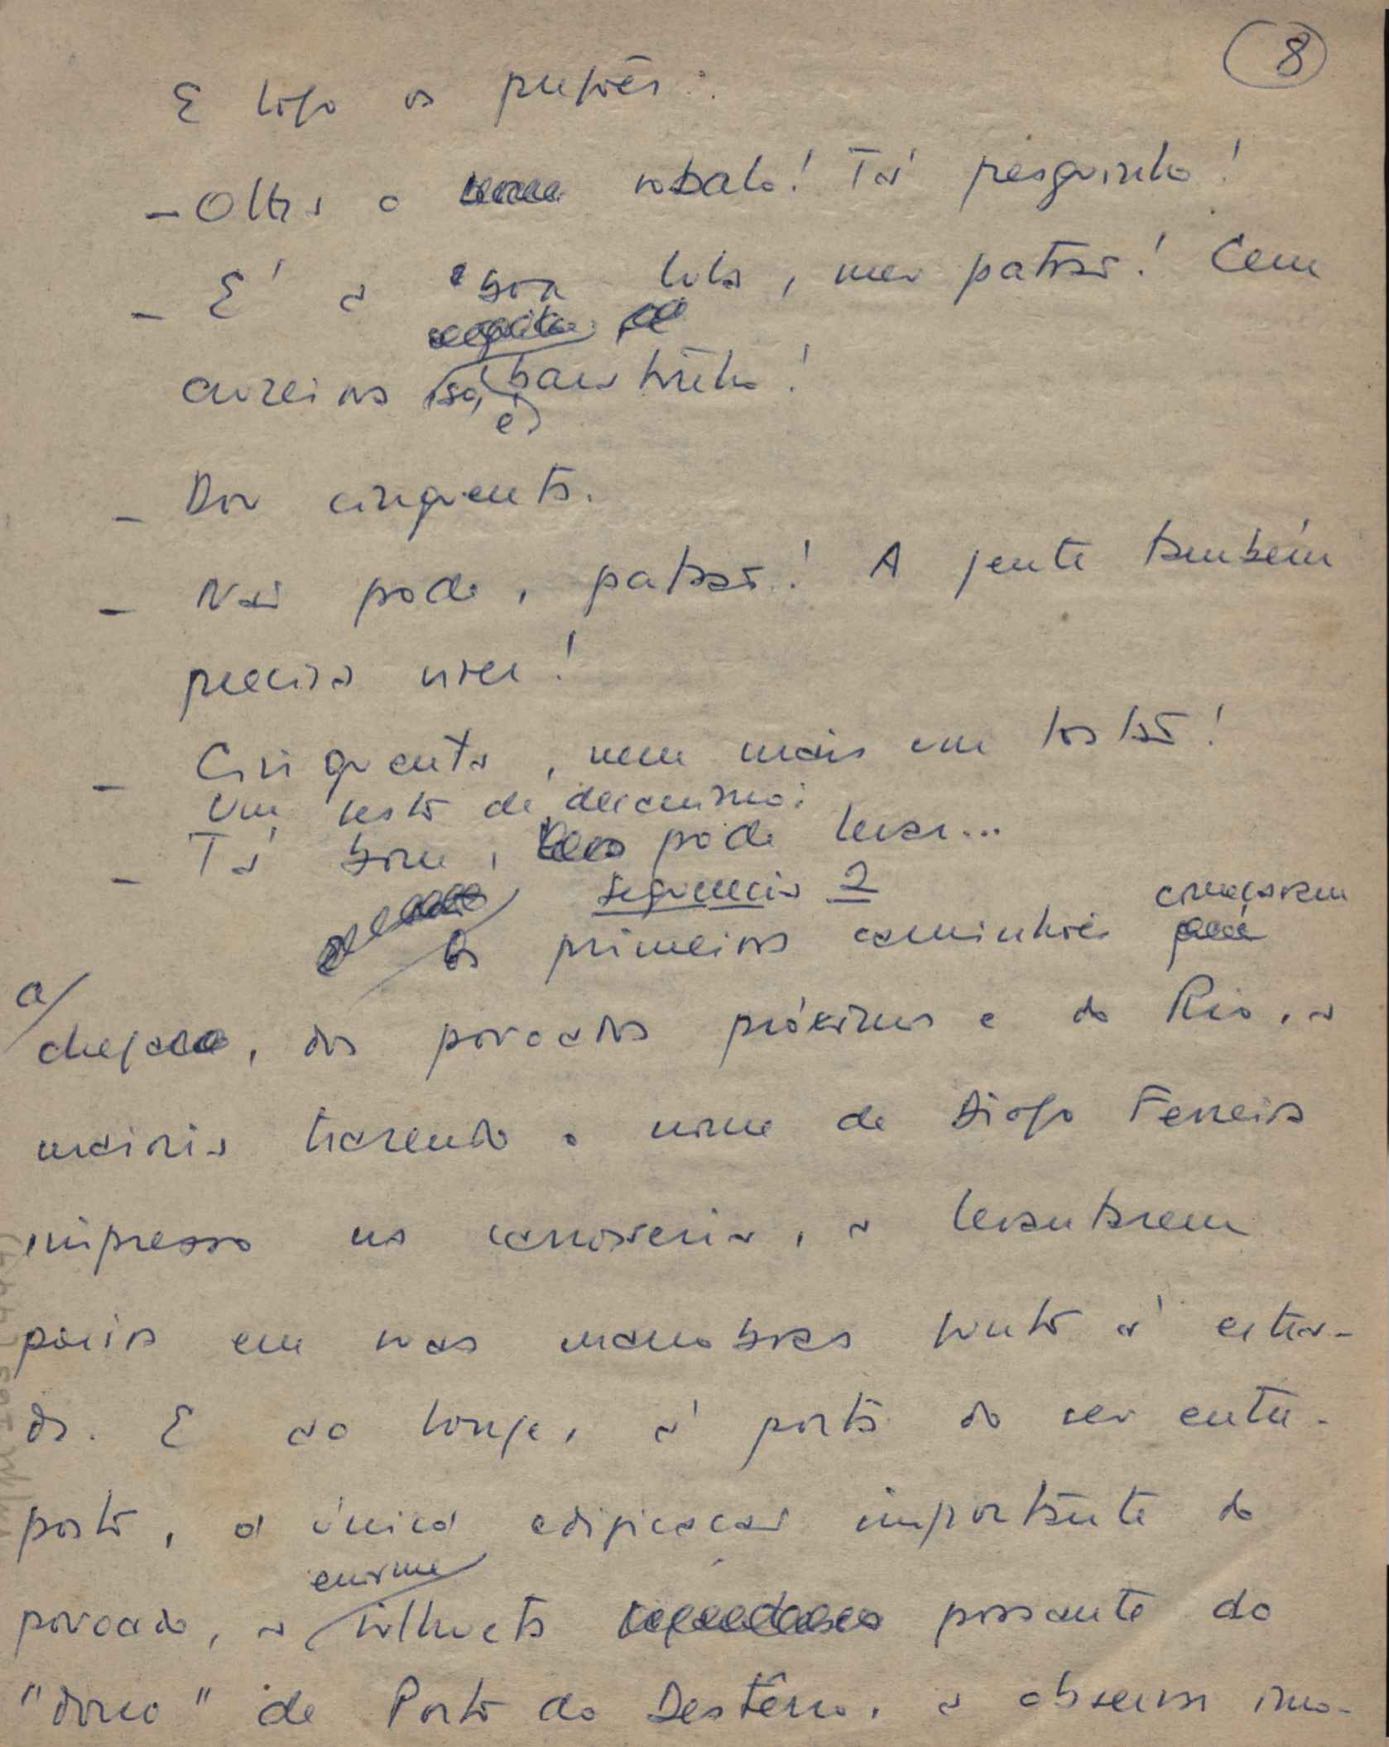 8
E logo os pregões:
- Olha o robalo! Tá fresquinho!
- É a boa lula, meu patrão! Cem
cruzeiros só, é baratinho!
- Dou cinquenta.
- Não pode, patrão! A gente também
precisa viver!
- Cinquenta, nem mais um tostão!
Um gesto de desânimo:
- Tá bom, pode levar...
Sequencia 2
Os primeiros caminhões começavam
a chegar, dos povoados próximos e do Rio, a
maioria trazendo o nome de Diogo Ferreira
impresso na carrosseria, a levantarem
poeira em suas manobras junto à estra-
da. E ao longe, à porta do seu entre-
posto, a única edificação importante do
povoado, a enorme silhueta possante do
"dono" de Porto do Destêrro, a observar imo-